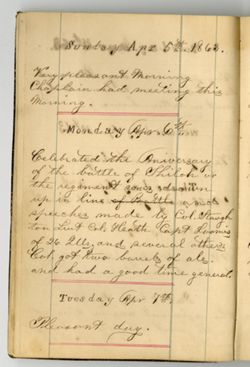 Sunday Apr 5th. 1863.
Very pleasant Morning
Chaplain had meeting this
Morning.
Monday Apr 6th
Celebrated the Aniversary
of the battle of Shiloh
the regiment
up in line and
speeches made by Col.
Lieut Col. Heath. Capt Loomis
of and several others
Col. got two barrels of ale.
and had a good time general
Tuesday Apr 7th.
Pleasant day.